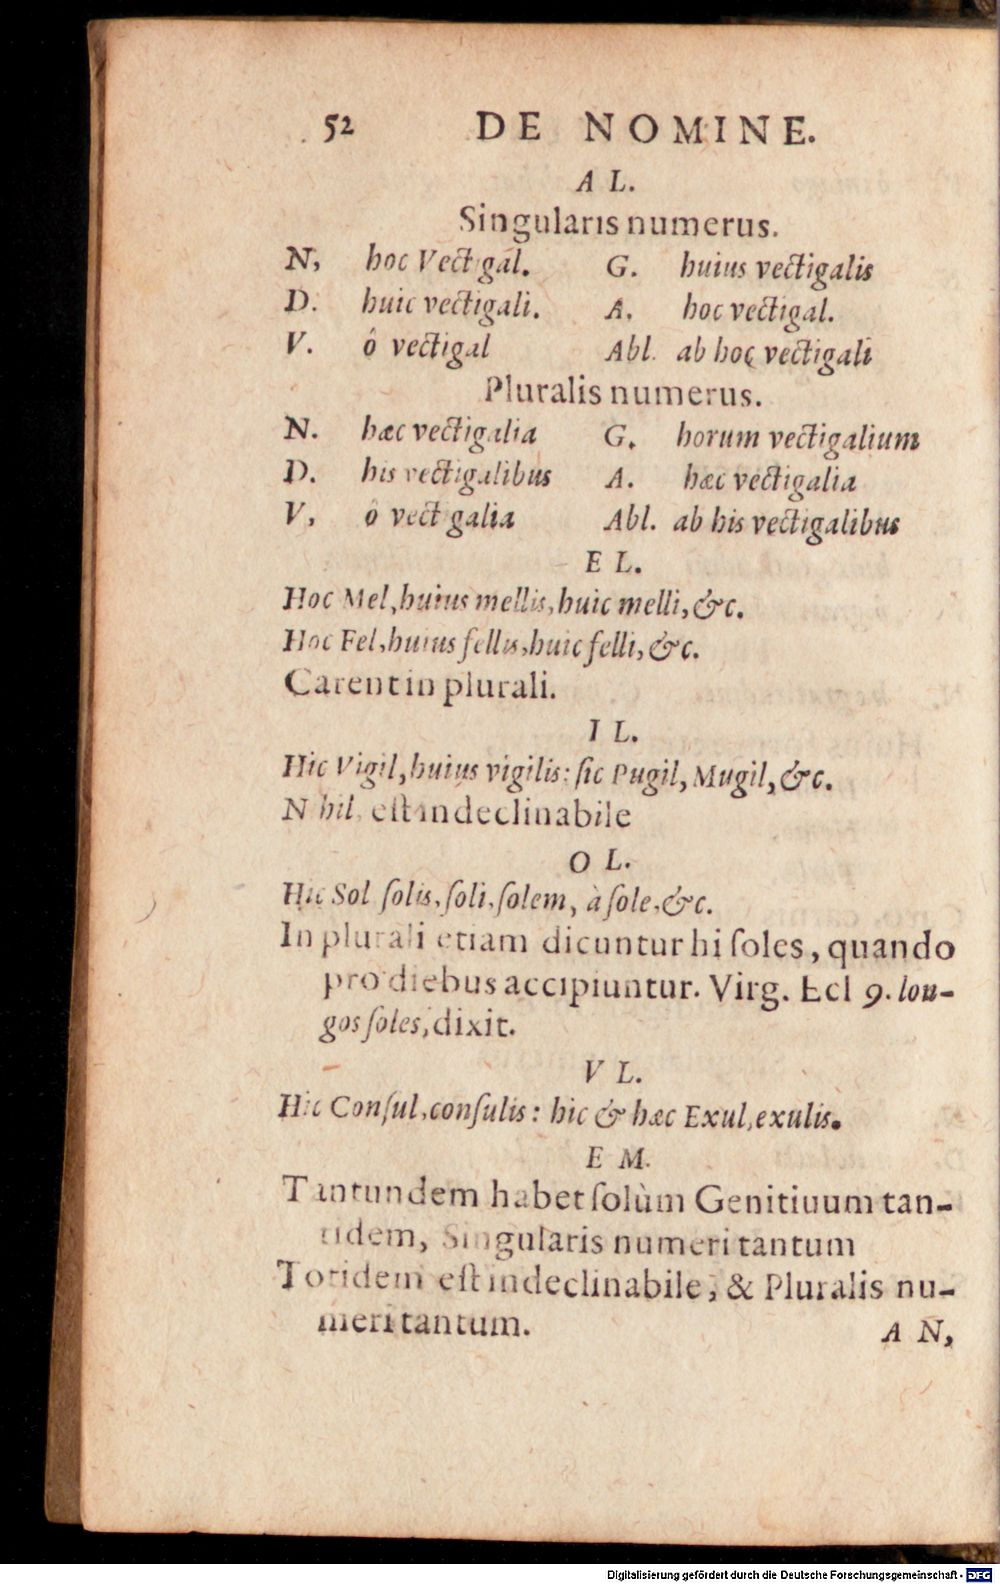 52 DE NOMINE.
A L.
Singularis numerus.
N, hoc Vectigal. G. huius vectigalis
D. huic vectigali. A. hoc vectigal.
V. ô vectigal Abl. ab hoc vectigali
Pluralis numerus.
N. hæc vectigalia G. horum vectigalium
D. his vectigalibus A. hæc vectigalia
V, ô vectigalia Abl. ab his vectigalibus
E L.
Hoc Mel, huius mellis, huic melli, &c.
Hoc Fel, huius fellis, huic felli, &c.
Carent in plurali.
I L.
Hic Vigil, huius vigilis: sic Pugil, Mugil, &c.
Nihil, est indeclinabile
O L.
Hic Sol ſolis, ſoli, ſolem, à ſole, &c.
In plurali etiam dicuntur hi ſoles, quando
pro diebus accipiuntur. Virg. Ecl 9. lon-
gos ſoles, dixit.
V L.
Hic Conſul, conſulis: hic & hæc Exul, exulis.
E M.
Tantundem habet ſolùm Genitiuum tan-
tidem, Singularis numeri tantum
Totidem eſt indeclinabile, & Pluralis nu-
meri tantum.
A N,
Digitalisierung gefördert durch die Deutsche Forschungsgemeinschaft - DFG